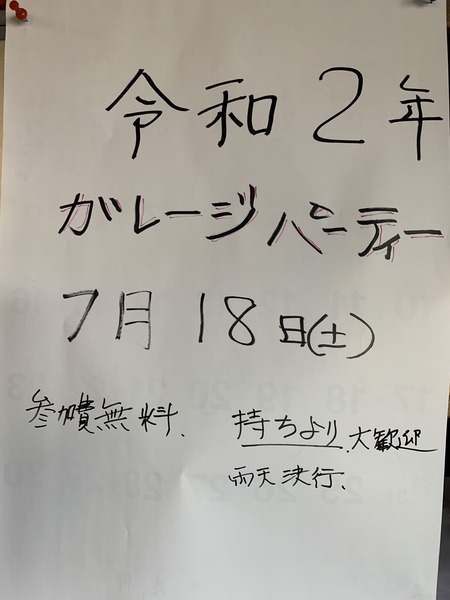 令和2年
ガレージパーティー
7月18日(土)
参加費無料、
持ちより、大歓迎
雨天決行、